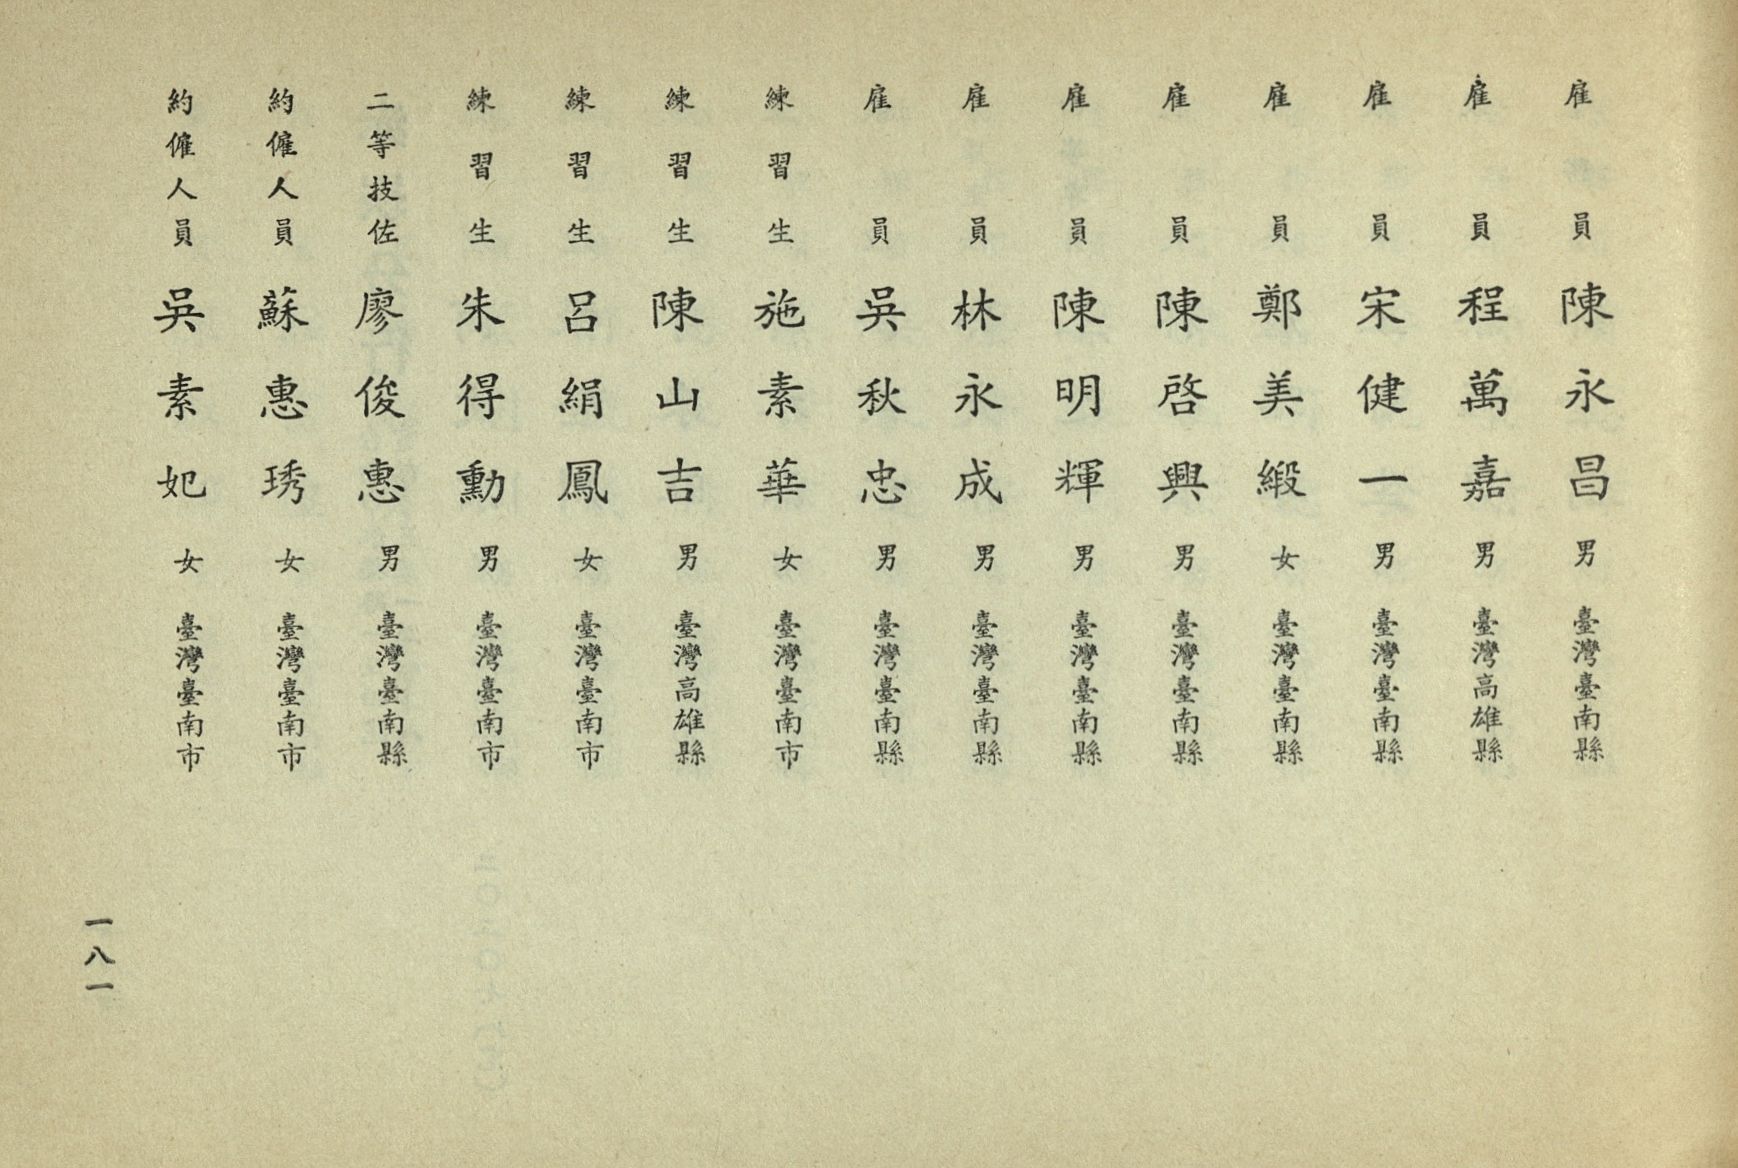 雇員 陳永昌 男 臺灣臺南縣
雇員 程萬嘉 男 臺灣高雄縣
雇員 宋健一 男 臺灣臺南縣
雇員 鄭美緞 女 臺灣臺南縣
雇員 陳啓興 男 臺灣臺南縣
雇員 陳明輝 男 臺灣臺南縣
雇員 林永成 男 臺灣臺南縣
雇員 吳秋忠 男 臺灣臺南縣
練習生 施素華 女 臺灣臺南市
練習生 陳山吉 男 臺灣高雄縣
練習生 呂絹鳳 女 臺灣臺南市
練習生 朱得勳 男 臺灣臺南市
二等技佐 廖俊惠 男 臺灣臺南縣
約僱人員 蘇惠琇 女 臺灣臺南市
約僱人員 吳素妃 女 臺灣臺南市
一八一